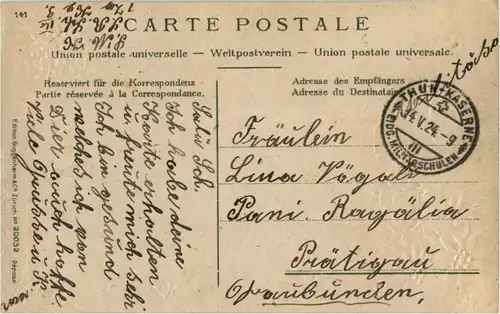 141
CARTE POSTALE
Union postale universelle — Weltpostverein — Union postale universale.
Reserviert für die Korrespondenz
Partie réservée à la Correspondance.
Adresse des Empfängers
Adresse du Destinataire
THUN-KASERNE
14.V.24.-9
III
EIDG. MILITÄRSCHULEN
Militärsache
Fräulein
Lina Vögali
Pani. Ragälia
Prätigau
Graubünden.
Salü Sch.
Ich habe deine
Karte erhalten
u. freute mich sehr
Ich bin gesund
welches ich von
Dier auch hoffe
Viele Grüsse u. K
Edition Guggenheim & Co. Zürich No 20032
Déposé